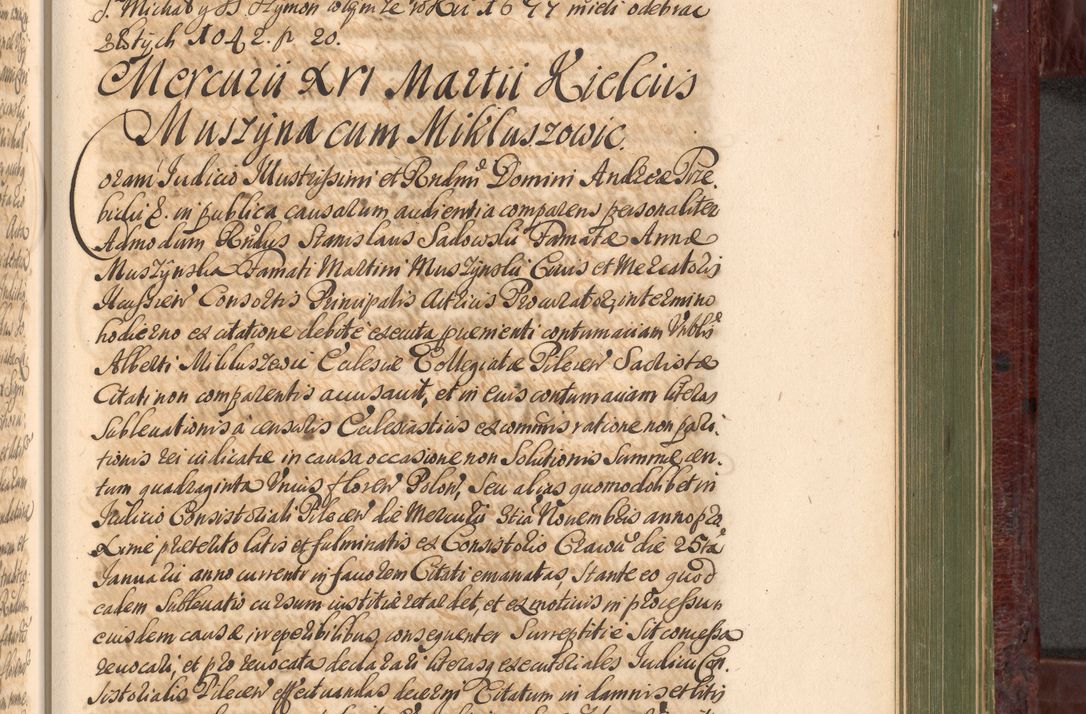 S. Michał y SS. Szymon w tymze roku 1677 mieli odebrac
złstych 1042. p 20.
Mercurii XVI Martii Kielciis
Muszÿna cum Mikluszowic.
Coram Iudicio Illustrissimi et Rndmi Domini Andreæ Tre-
bicki &. in publica causarum audientia comparens personaliter
Admodum Rndus Stanislaus Sadowski Famatæ Annæ
Muszÿnska Famati Martini Muszÿnski Civis et Mercatoris
Consortis Principalis Actricis Procurator, in termino
hodierno ex citatione debite executa præmenti contumaciam Vnblis
Alberti Mikluszowic Ecclesiæ Collegiatæ Pilecen Sacristæ
Citati non comparentis accusavit, et in eius contumaciam literas
sublevationis a censuris Ecclesiasticis ex commis ratione non pari-
tionis rei iudicatæ in causa occasione non Solutionis Summæ cen-
tum quadraginta Unius floren Polon, Seu alias quomodolibet in
Iudicio Consistoriali Pilecen die Mercurii 3tia Novembris anno pro-
xime præterito latis et fulminatis ex Consistorio Cracov die 25ta
Ianuarii anno currenti in favorem Citati emanatas, Stante eo quod
eadem Sublevatio cursum iustitiæ retardet, et ex motivis in processu
eiusdem causæ irreperibilibus consequenter Surreptitie Sit concessa
revocari, et pro revocata declarari literasq executoriales Iudicii Con-
sistorialis Pilecen effectuandas decerni Citatum in damnis et litis